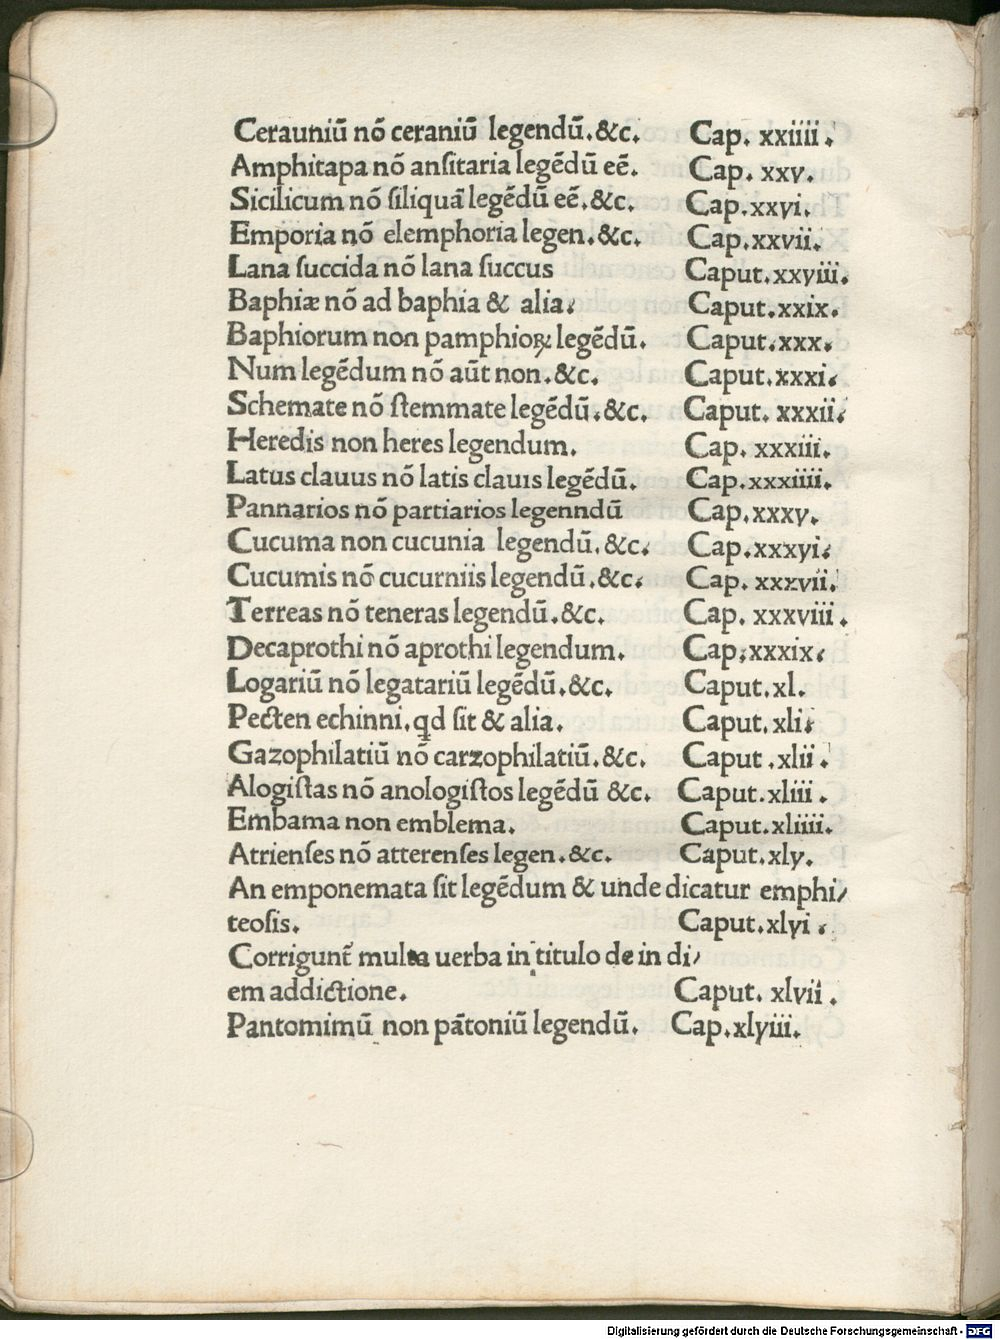 Cerauniū nō ceraniū legendū.&c. Cap. xxiiii.
Amphitapa nō anſitaria legēdū eē. Cap. xxv.
Sicilicum nō ſiliquā legēdū eē.&c. Cap.xxvi.
Emporia nō elemphoria legen.&c. Cap.xxvii.
Lana ſuccida nō lana ſuccus Caput.xxviii.
Baphiæ nō ad baphia & alia. Caput.xxix.
Baphiorum non pamphioꝝ legēdū. Caput.xxx.
Num legēdum nō aūt non.&c. Caput.xxxi.
Schemate nō ſtemmate legēdū.&c. Caput. xxxii.
Heredis non heres legendum. Cap. xxxiii.
Latus clauus nō latis clauis legēdū. Cap.xxxiiii.
Pannarios nō partiarios legenndū Cap.xxxv.
Cucuma non cucunia legendū.&c. Cap.xxxvi.
Cucumis nō cucurniis legendū.&c. Cap. xxxvii.
Terreas nō teneras legendū.&c. Cap. xxxviii.
Decaprothi nō aprothi legendum. Cap.xxxix.
Logariū nō legatariū legēdū.&c. Caput.xl.
Pecten echinni.qd ſit & alia. Caput.xli.
Gazophilatiū nō carzophilatiū.&c. Caput.xlii.
Alogiſtas nō anologiſtos legēdū &c. Caput.xliii.
Embama non emblema. Caput.xliiii.
Atrienſes nō atterenſes legen.&c. Caput.xlv.
An emponemata ſit legēdum & unde dicatur emphi/
teoſis. Caput.xlvi.
Corrigunt̄ multa uerba in titulo de in di/
em addictione. Caput. xlvii.
Pantomimū non pātoniū legendū. Cap.xlviii.
Digitalisierung gefördert durch die Deutsche Forschungsgemeinschaft - DFG